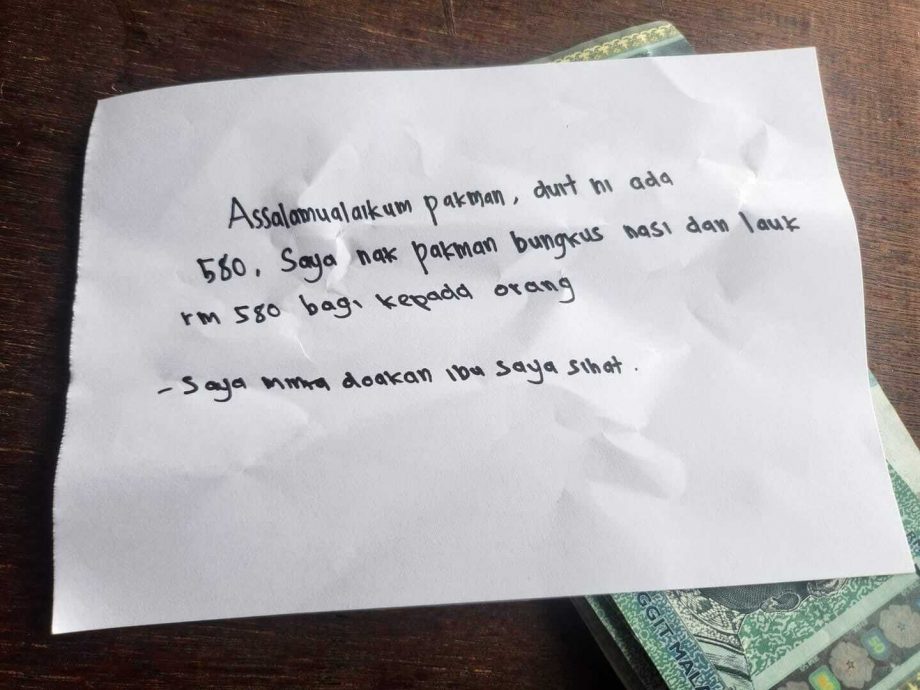 Assalamualaikum pakman, duit ni ada
580. Saya nak pakman bungkus nasi dan lauk
rm 580 bagi kepada orang
- Saya minta doakan ibu saya sihat.
GGIT MALA